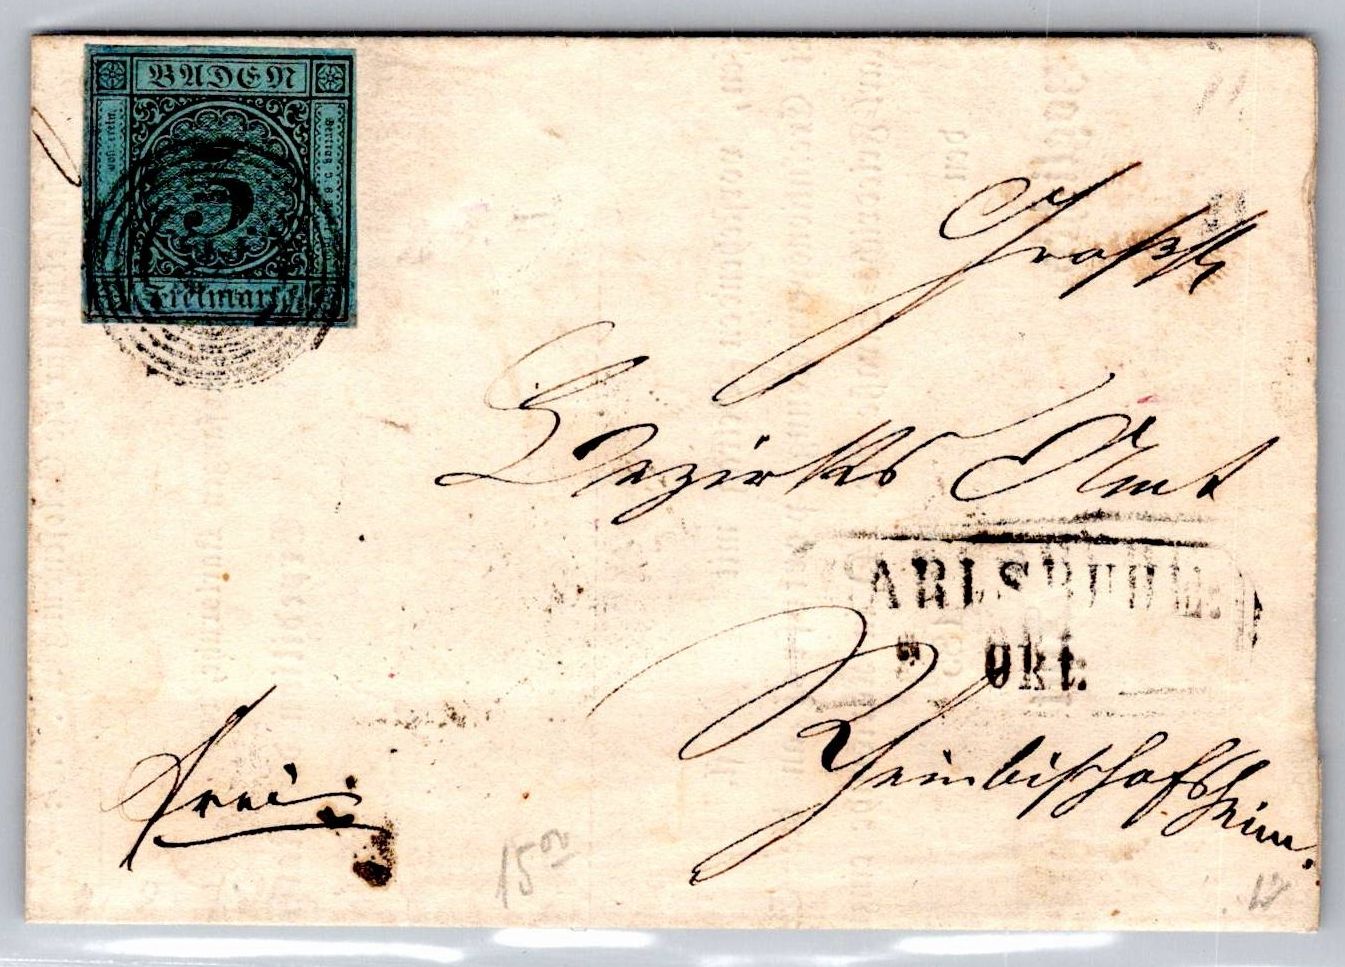 BADEN
3
Freimarke
Großh
Bezirks Amt
ARLSRUHE
OKt.
Rheinbischofsheim.
frei
15.00
12